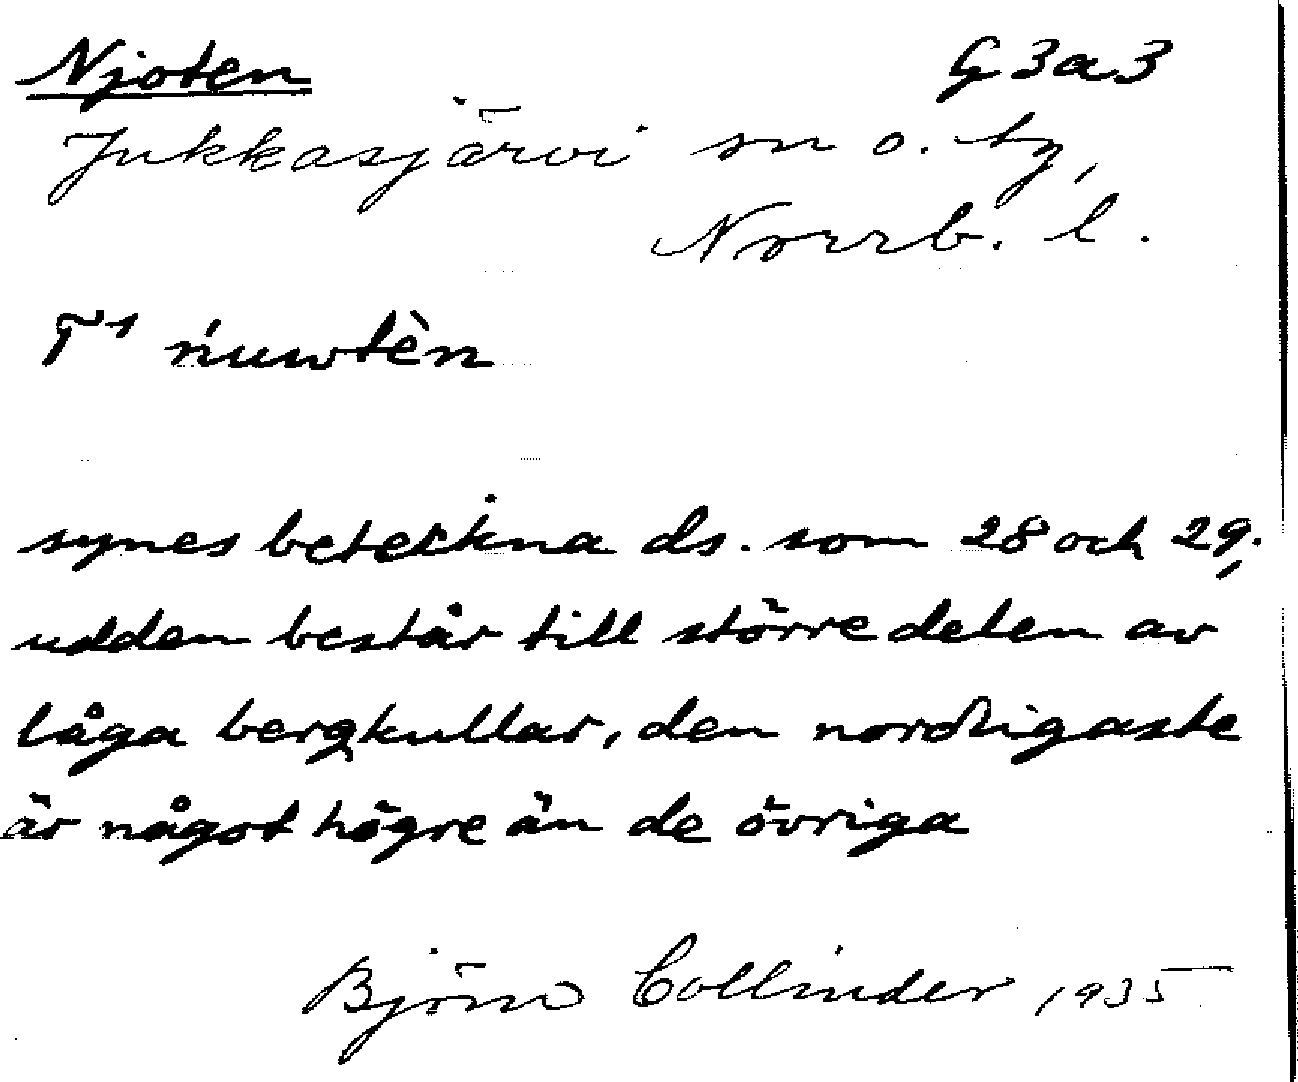 Njoten G3a3
Jukkasjärvi sn o. tg,
Norrb. l.
T¹ ńuwtèn
synes beteckna ds. som 28 och 29.
udden består till större delen av
låga bergkullar, den nordligaste
är något högre än de övriga
Björn Collinder 1935